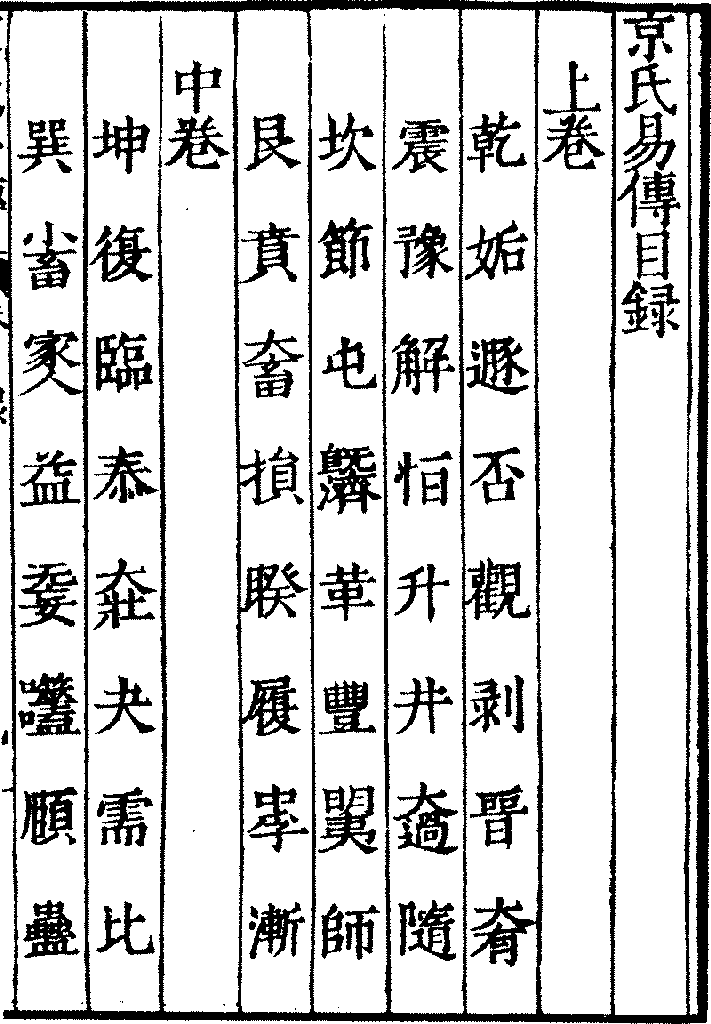 京氏易傳目録
上卷
乾 姤 遯 否 觀 剥 晉 大有
震 豫 解 恒 升 井 大過 隨
坎 節 屯 既濟 革 豐 明夷 師
艮 賁 大畜 損 睽 履 中孚 漸
中卷
坤 復 臨 泰 大壯 夬 需 比
巽 小畜 家人 益 无妄 噬嗑 頤 蠱